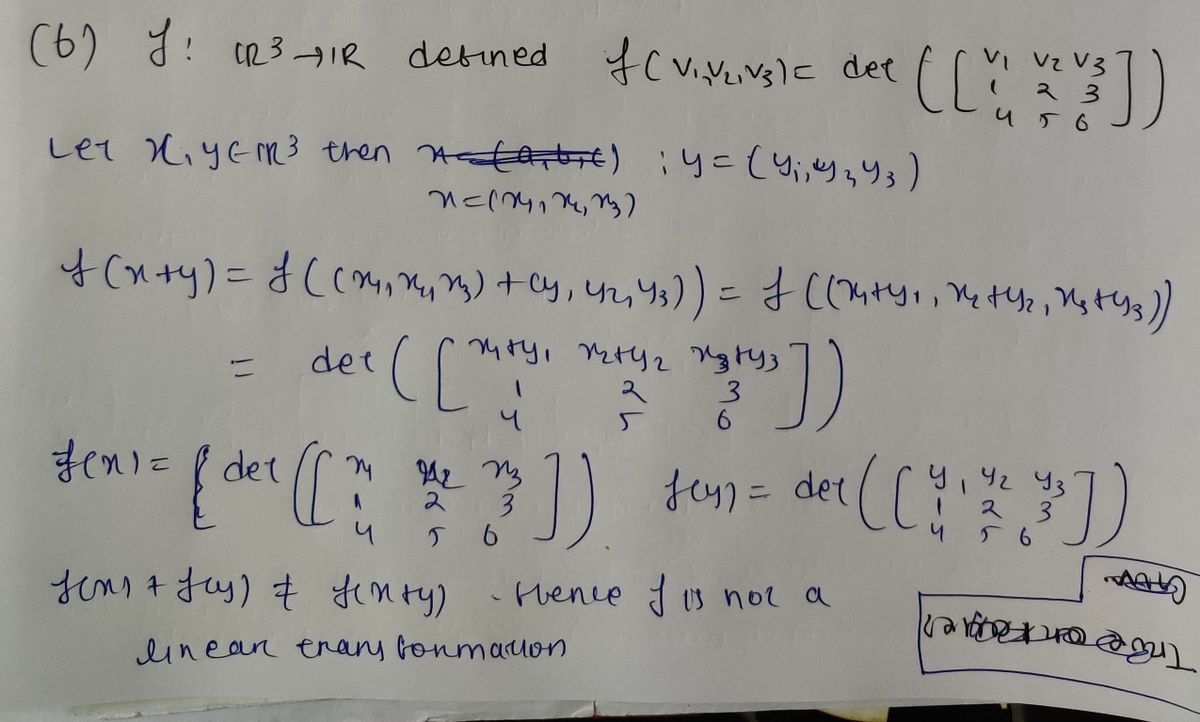 (b) f: ℝ3→ℝ defined f(v1,v2,v3)= det([v1 v2 v3
1 2 3
4 5 6])
Let x,y∈ℝ3 then ; y=(y1,y2,y3)
x=(x1,x2,x3)
f(x+y)= f((x1,x2,x3)+(y1,y2,y3))= f((x1+y1, x2+y2, x3+y3))
= det([x1+y1 x2+y2 x3+y3
1 2 3
4 5 6])
f(x)= { det([x1 x2 x3
1 2 3
4 5 6]). f(y)= det([y1 y2 y3
1 2 3
4 5 6])
f(x)+f(y) ≠ f(x+y). Hence f is not a
linear transformation